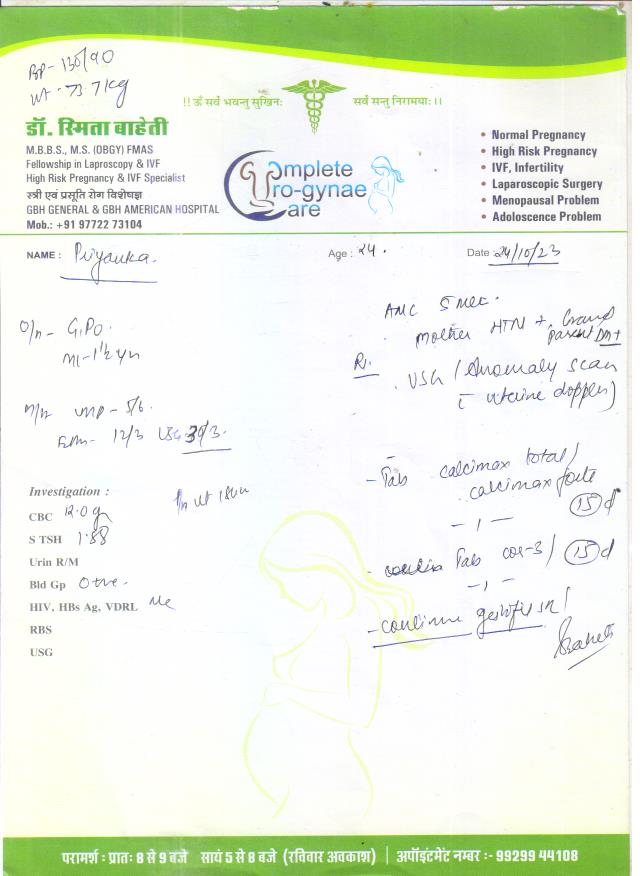 BP - 130/90
Wt - 73.7 kg
!! ॐ सर्वे भवन्तु सुखिनः सर्वे सन्तु निरामयाः !!
डॉ. स्मिता बाहेती
M.B.B.S., M.S. (OBGY) FMAS
Fellowship in Laproscopy & IVF
High Risk Pregnancy & IVF Specialist
स्त्री एवं प्रसूति रोग विशेषज्ञ
GBH GENERAL & GBH AMERICAN HOSPITAL
Mob.: +91 97722 73104
Complete
Uro-gynae
Care
• Normal Pregnancy
• High Risk Pregnancy
• IVF, Infertility
• Laparoscopic Surgery
• Menopausal Problem
• Adoloscence Problem
NAME : Priyanka.
Age : 24.
Date : 24/10/23
O/H - G1P0.
Ml - 1½ yr
M/H LMP - 5/6.
EDD - 12/3 USG 30/3.
ANC 5 mth.
mother HTN + Grand
parent DM+
Rx.
USG / Anomaly scan
c uterine doppler)
- Tab calcimax total /
calcimax forte
- 1 -
15 d
- Tab cor-3 / 15 d
- 1 -
- continue
Investigation :
CBC 12.0 g
S TSH 1.88
Urin R/M
Bld Gp O +ve.
HIV, HBs Ag, VDRL
RBS
USG
परामर्श : प्रातः 8 से 9 बजे सायं 5 से 8 बजे (रविवार अवकाश) | अपॉइंटमेंट नम्बर :- 99299 44108